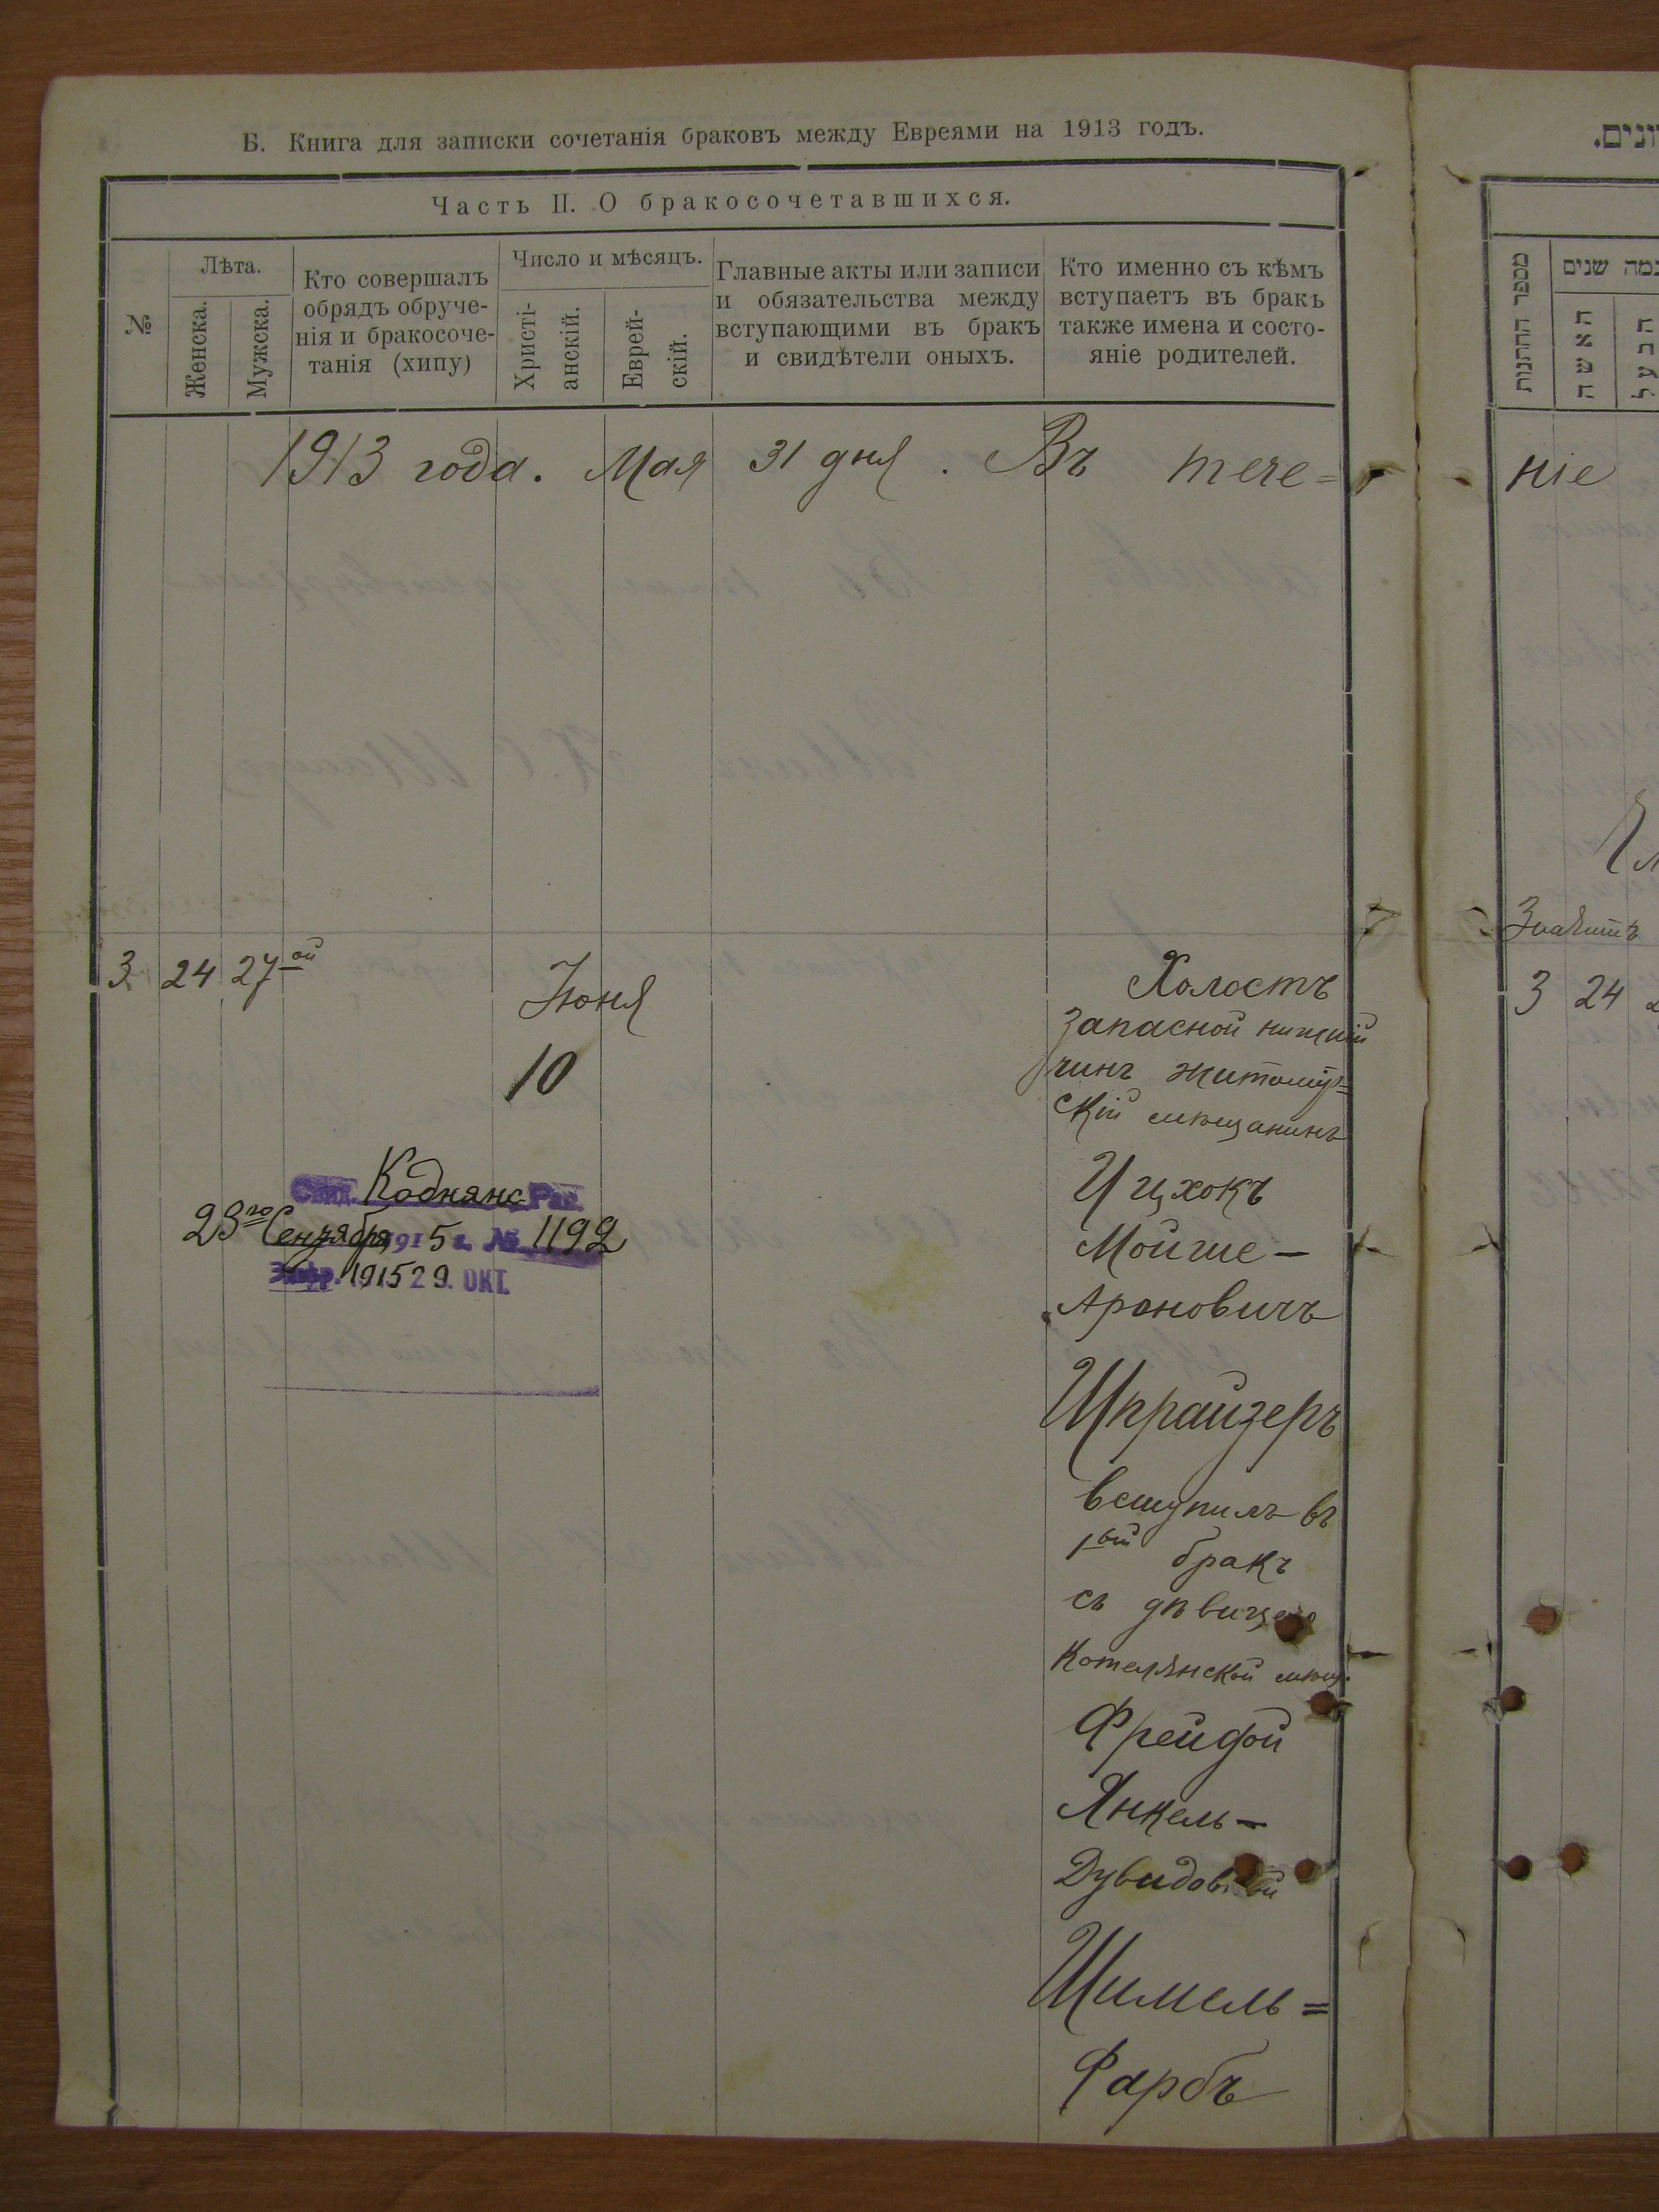 Б. Книга для записки сочетанія браковъ между Евреями на 1913 годъ.
Часть II. О бракосочетавшихся.
№
Лѣта.
Женска.
Мужска.
Кто совершалъ
обрядъ обруче-
нія и бракосоче-
танія (хипу)
Число и мѣсяцъ.
Христі-
анскій.
Еврей-
скій.
Главные акты или записи
и обязательства между
вступающими въ бракъ
и свидѣтели оныхъ.
Кто именно съ кѣмъ
вступаетъ въ бракъ
также имена и состо-
яніе родителей.
1913 года. Мая 31 дня. Въ тече=
3 24 27ой
Іюня
10
Холостъ
запасной нижній
чинъ житомір=
скій мѣщанинъ
Ицхокъ
Мойше-
Ароновичъ
Шпрайзеръ
вступилъ въ
1ый бракъ
съ дѣвицею
Котелянской мѣщ.
Фрейдой
Янкель-
Дувидовной
Шимель=
Фарбъ
Свид. Коднянс Рав.
23го Сентября 1915 г. № 1192
Завѣр. 1915 29. ОКТ.
מספר החתנות
האשה
הבעל
ніе
3 24